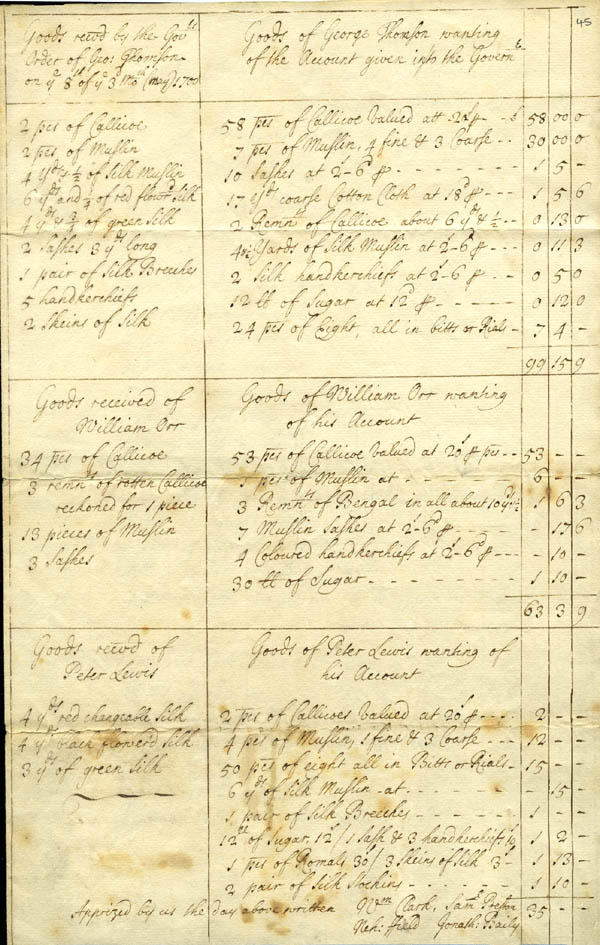 45
Goods recvd by the Govrs
Order of Geo: Thomson
on ye 8th of ye 3d moth (may) 1700
Goods of George Thomson wanting
of the Account given into the Governt
2 pes of Callicoe
2 pes of Muslin
4 yds & ½ of Silk Muslin
6 yds and of red flowrd Silk
4 yds & ¾ of green Silk
2 Sashes 3 yds long
1 pair of Silk Breeches
5 handkerchiefs
2 Skeins of Silk
58 pes of Callicoe Valued att 20s p 58 00 0
7 pes of Muslin, 4 fine & 3 Coarse 30 00 0
10 Sashes at 2s-6d p 1 5 -
17 yds coarse Cotton Cloth at 18d p 1 5 6
2 Remnts of Callicoe about 6 yds & ½ 0 13 0
4½ Yards of Silk Muslin at 2s-6d p 0 11 3
2 Silk handkerchiefs at 2s-6 p 0 5 0
12 lb of Sugar at 12d p 0 12 0
24 pes of Eight, all in bitts or Rials 7 4 -
99 15 9
Goods received of
William Orr
Goods of William Orr wanting
of his Account
34 pes of Callicoe
3 remnts of rotten Callicoe
reckoned for 1 piece
13 pieces of Muslin
3 Sashes
53 pes of Callicoe Valued at 20s p pes 53 - -
1 pes of Muslin at 6 - -
3 Remnts of Bengal in all about 10 yds ½ 1 6 3
7 Muslin Sashes at 2s-6d p - 17 6
4 Coloured handkerchiefs at 2s-6d p - 10 -
30 lb of Sugar 1 10 -
63 3 9
Goods recvd of
Peter Lewis
Goods of Peter Lewis wanting of
his Account
4 yds red changeable Silk
4 yds black flowerd Silk
3 yds of green Silk
2 pes of Callicoes Valued at 20s p 2 - -
4 pes of Muslin, 1 fine & 3 Coarse 12 - -
50 pes of eight all in Bitts or Rials 15 - -
6 yds of Silk Muslin at - 15 -
1 pair of Silk Breeches 1 - -
12lb of Sugar, 12s / 1 Sash & 3 handkerchiefs 10 1 2 -
1 pes of Romals 30s / 3 Skeins of Silk 3s 1 13 -
2 pair of Silk Stockins 1 10 -
35 - -
Apprized by us the day above written Wm Clark, Saml Preston
Neh: ffield Jonath: Baily